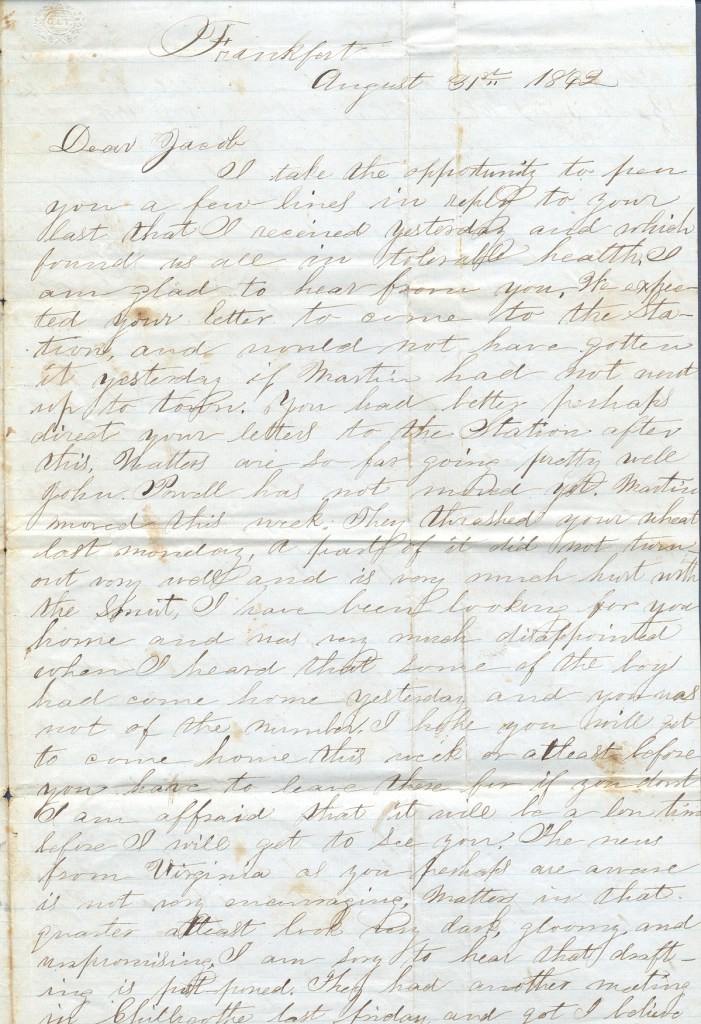 Frankfort
August 31st 1862
Dear Jacob
I take the opportunity to pen
you a few lines in reply to your
last that I received yesterday and which
found us all in tolerable health. I
am glad to hear from you. We expec-
ted your letter to come to the Sta-
tion, and would not have gotten
it yesterday if Martin had not went
up to town. You had better perhaps
direct your letters to the Station after
this. Matters are so far going pretty well
John Powell has not moved yet. Martin
moved this week. They thrashed your wheat
last monday, a part of it did not turn
out very well and is very much hurt with
the Smut, I have been looking for you
home and was very much disappointed
when I heard that some of the boy
had come home yesterday and you was
not of the number. I hope you will get
to come home this week or atleast before
you have to leave there for if you dont
I am affraid that it will be a lon time
before I will get to see you. The news
from Virginia as you perhaps are aware
is not very encouraging, Matters in that
quarter atleast look very dark, gloomy, and
unpromising. I am sory to hear that draft-
ing is postponed. They had another meeting
in Chillicothe last friday and got I believe